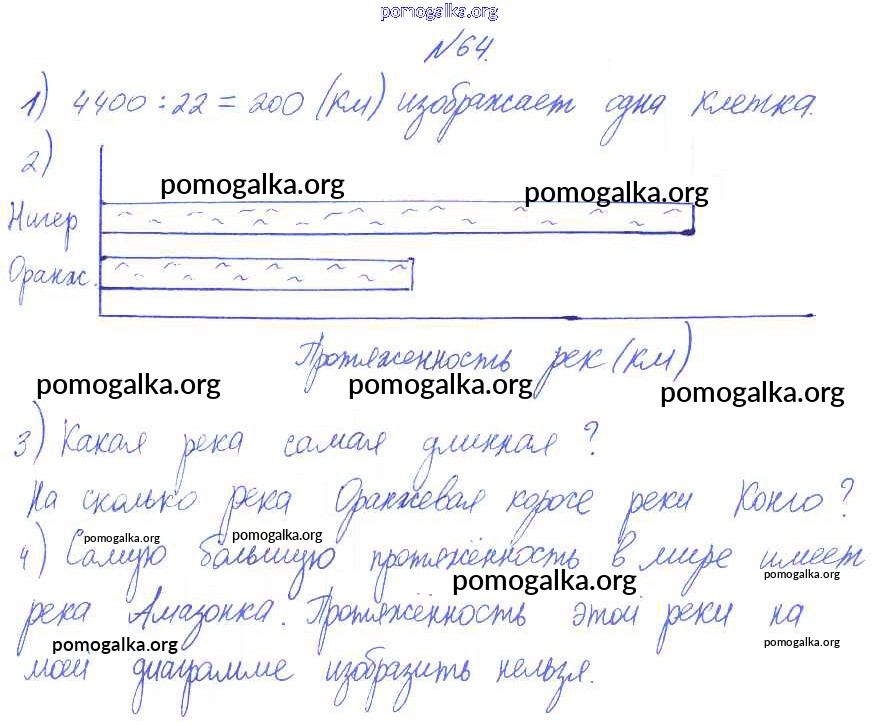 pomogalka.org
№64.
1) 4400 : 22 = 200 (км) изображает одна клетка.
2)
pomogalka.org
pomogalka.org
Нигер
Оранж.
Протяженность рек (км)
pomogalka.org pomogalka.org pomogalka.org
3) Какая река самая длинная?
На сколько река Оранжевая короче реки Конго?
pomogalka.org pomogalka.org
4) Самую большую протяжённость в мире имеет
pomogalka.org pomogalka.org
река Амазонка. Протяжённость этой реки на
pomogalka.org pomogalka.org
моей диаграмме изобразить нельзя.